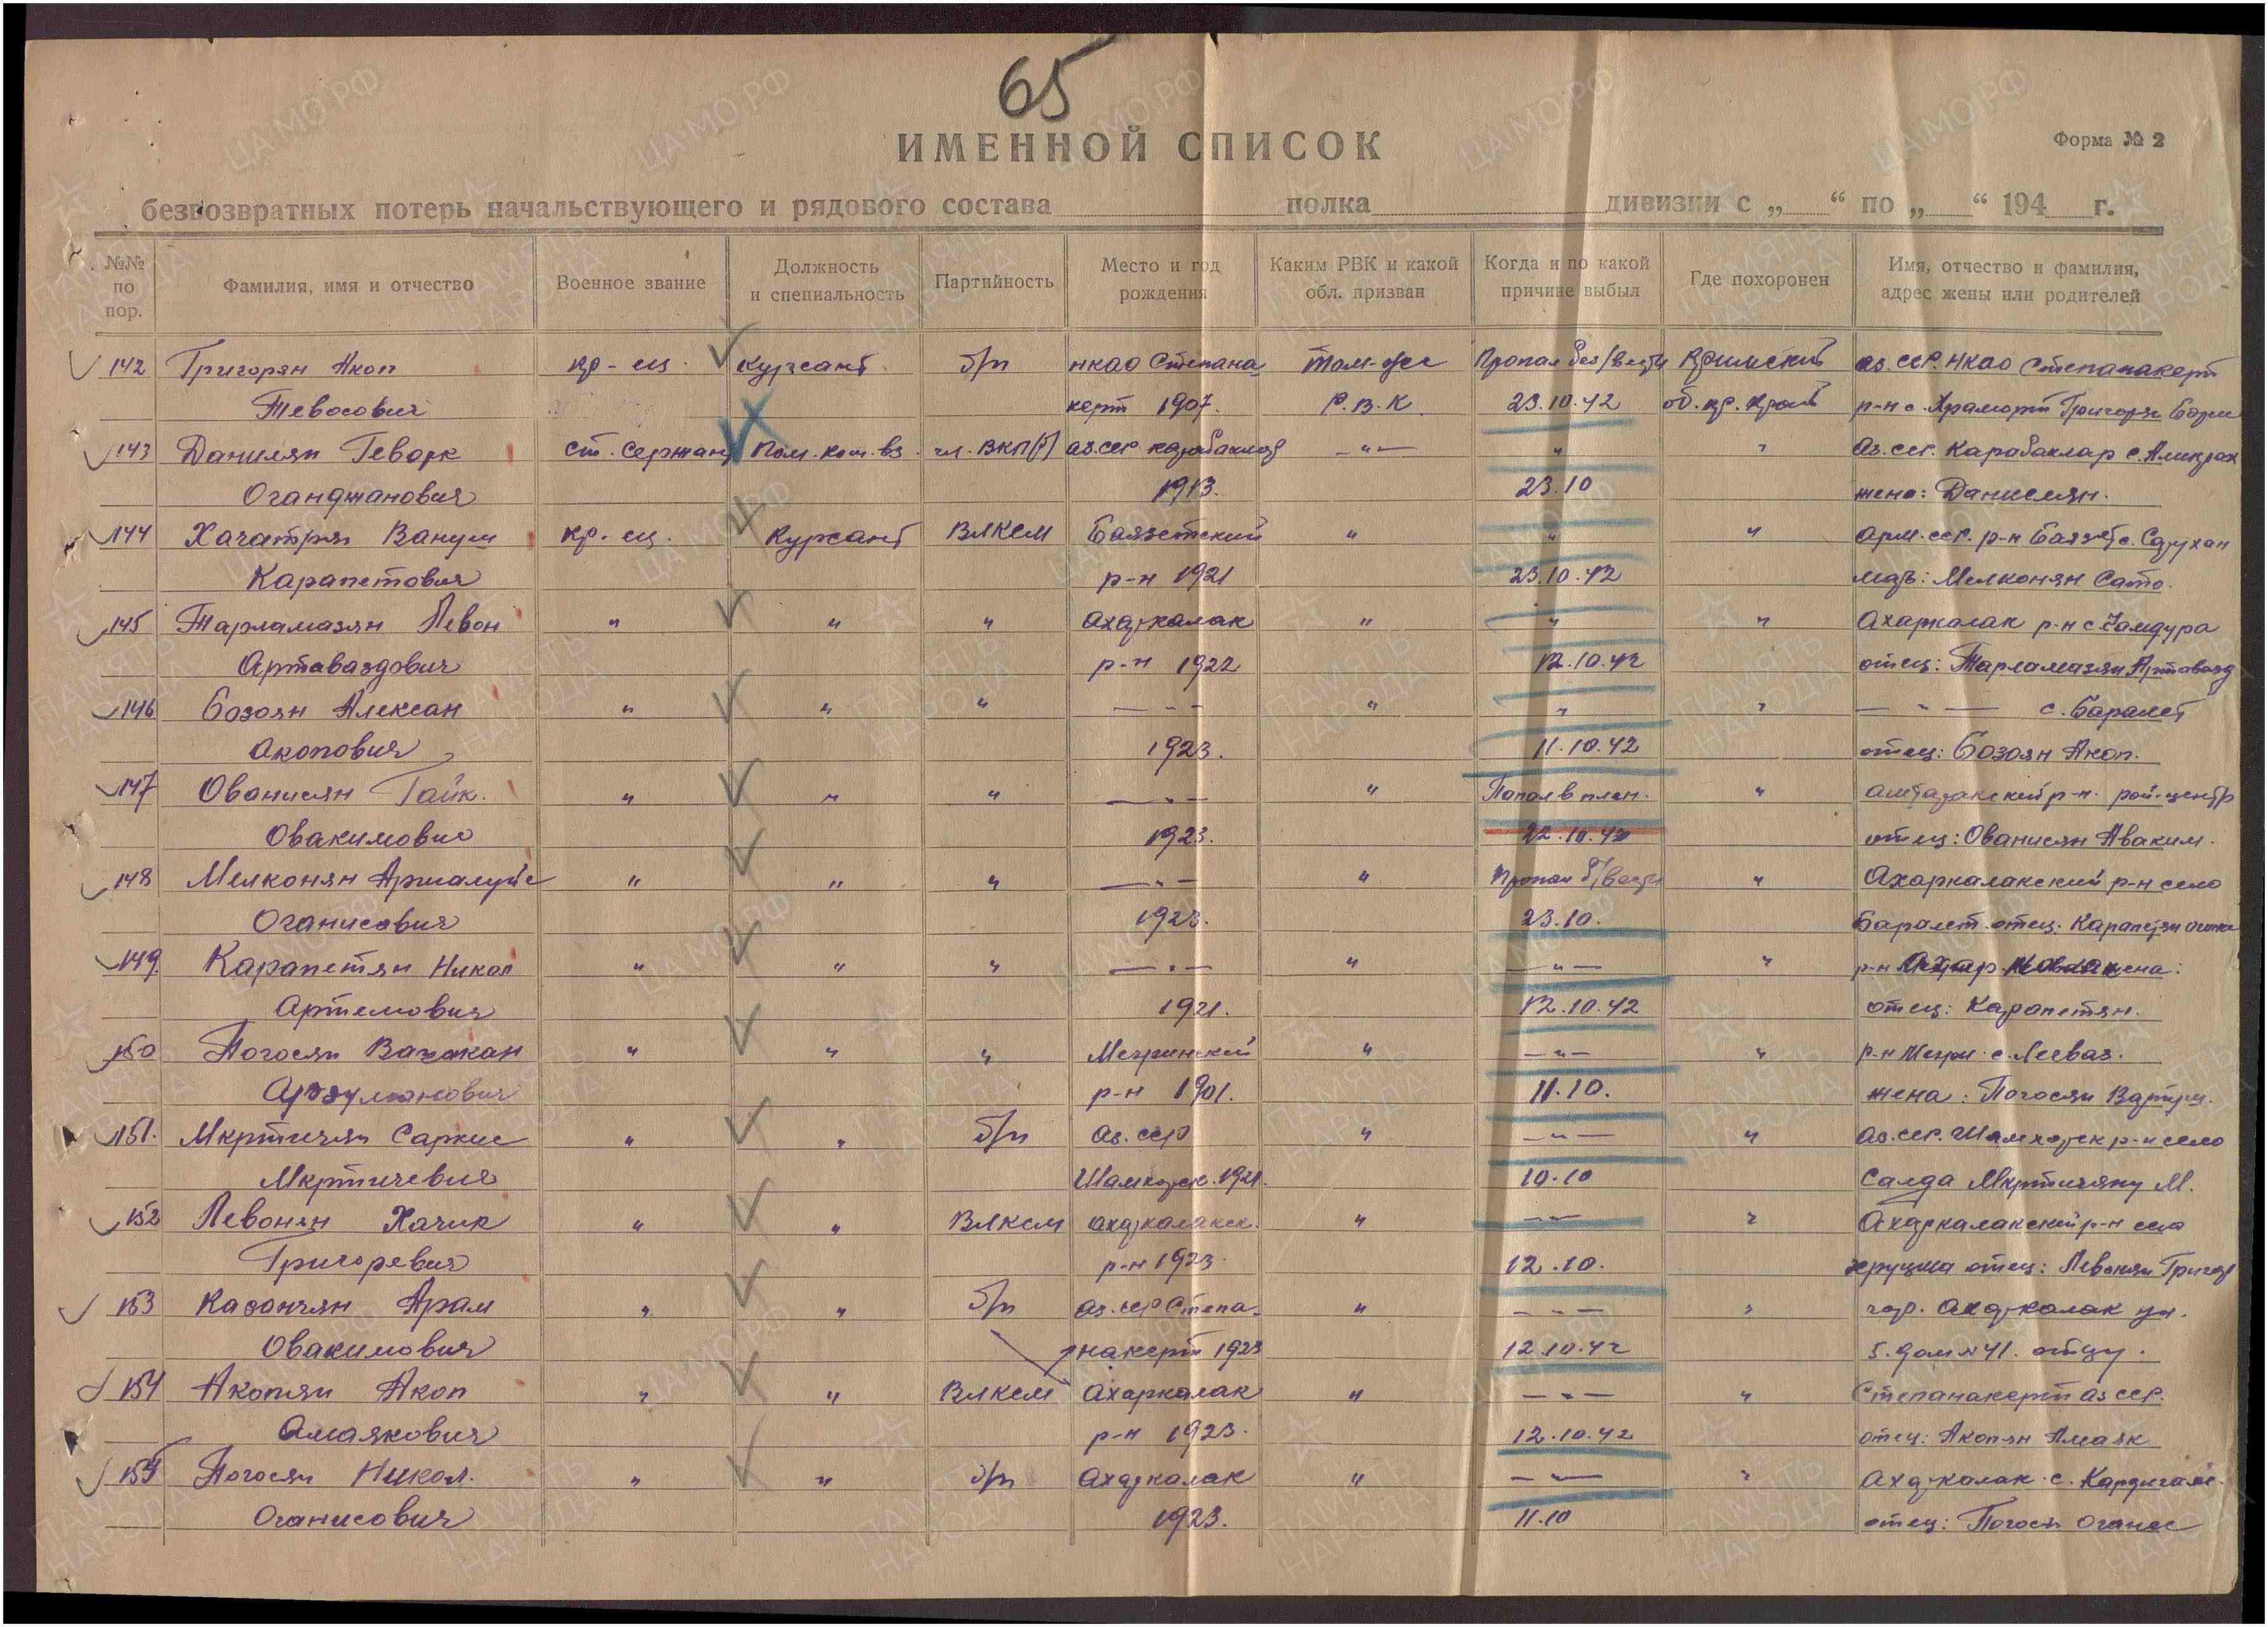 65
ИМЕННОЙ СПИСОК
Форма № 2
безвозвратных потерь начальствующего и рядового состава полка дивизии с „ “ по „ “ 194 г.
№№ по пор. Фамилия, имя и отчество Военное звание Должность и специальность Партийность Место и год рождения Каким РВК и какой обл. призван Когда и по какой причине выбыл Где похоронен Имя, отчество и фамилия, адрес жены или родителей
142 Григорян Акоп кр-ец. Курсант б/п НКАО Степана- Пропал без/вести аз. ССР. НКАО Степанакерт
Тевосович керт 1907. Р.В.К 23.10.42 р-н с. Храморт Григорян
143 Данилян Геворк ст. Сержант Пом. ком. вз. чл. ВКП(б) аз. сср -"- " " Аз. сср. Карабаклар с.
Оганджанович 1913. 23.10 жена: Даниелян.
144 Хачатрян Вануш кр. ец. Курсант ВЛКСМ Баязетский " " " Арм. сср. р-н Баязет с.
Карапетович р-н 1921 23.10.42 мать: Мелконян Сато.
145 Тарламазян Левон " " " Ахаркалак " " " Ахаркалак р-н с.
Артаваздович р-н 1922 12.10.42 отец: Тарламазян Артавазд
146 Бозоян Алексан " " " — " — " " " — " — с. Баралет
Акопович 1923. 11.10.42 отец: Бозоян Акоп.
147 Ованисян Гайк. " " " — " — " Попал в плен. " р-н. рай-центр
Овакимович 1923. 22.10.42 отец: Ованисян Аваким.
148 Мелконян " " " — " — " Пропал б/вести " Ахаркалакский р-н село
Оганисович 1923. 23.10. Баралет. отец: Карапетян
149 Карапетян Никол " " " — " — " — " — " р-н
Артемович 1921. 12.10.42 отец: Карапетян.
150 Погосян Вачакан " " " Мегринский " — " — " р-н Мегри с. Легваз.
Арзуманович р-н 1901. 11.10. жена: Погосян
151. Мкртичян Саркис " " б/п аз. сср " — " — " аз. сср. р-н село
Мкртичевич 1921. 10.10 Мкртичяну М.
152 Левонян Хачик " " ВЛКСМ ахаркалакск. " — " — " Ахаркалакский р-н село
Григоревич р-н 1923. 12.10. отец: Левонян
153 Казанчян Арам " " б/п аз. сср Степа- " — " — " гор. Ахаркалак ул.
Овакимович накерт 1923 12.10.42 5. дом № 41. отцу.
154 Акопян Акоп " " ВЛКСМ Ахаркалак " — " — " Степанакерт аз сср.
Амаякович р-н 1923. 12.10.42 отец: Акопян Амаяк
155 Погосян Никол. " " б/п Ахаркалак " — " — " Ахаркалак. с.
Оганисович 1923. 11.10 отец: Погосян Оганес